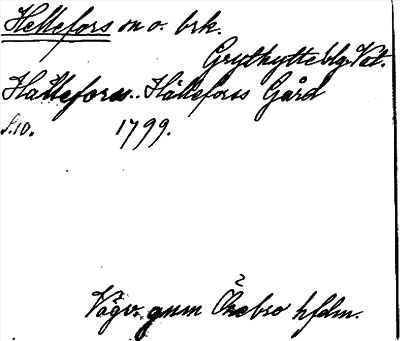 Hellefors sn o. brk.
Grythytte blg. Vst.
Hällefors. Hällefors Gård
S.10. 1799.
Vägv. gnm Örebro hfdm.